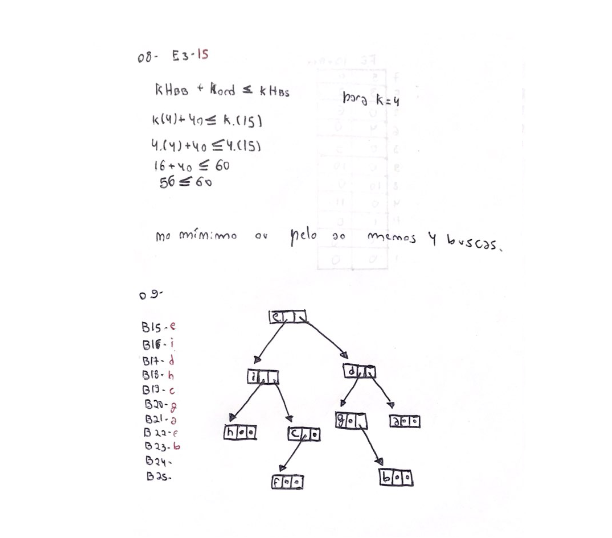 08- E3-15
KHBB + Kord ≤ KHBS para K=4
K(4)+40 ≤ K.(15)
4.(4)+40 ≤ 4.(15)
16+40 ≤ 60
56 ≤ 60
no mínimo ou pelo ao menos 4 buscas.
09-
B15-e
B16-i
B17-d
B18-h
B19-c
B20-g
B21-a
B22-f
B23-b
B24-
B25-
e
i d
h 0 0 c 0 g 0 a 0 0
f 0 0 b 0 0